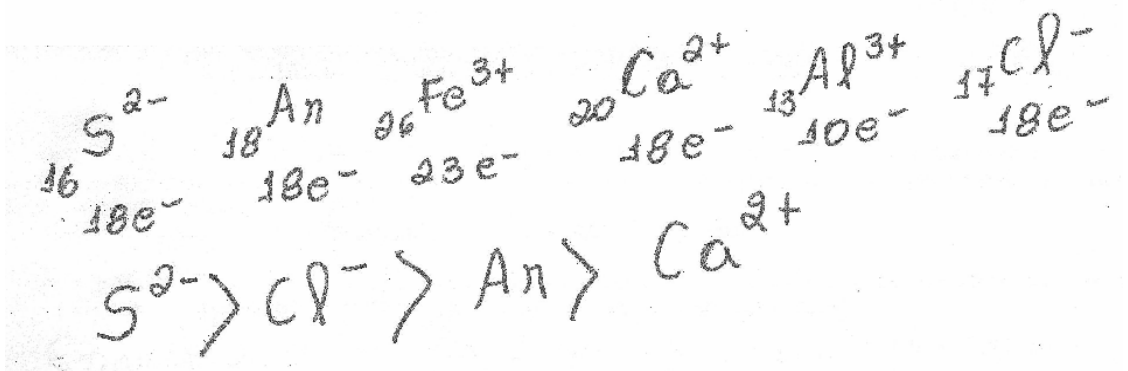 ₁₆S²⁻ ₁₈Ar ₂₆Fe³⁺ ₂₀Ca²⁺ ₁₃Al³⁺ ₁₇Cl⁻
18e⁻ 18e⁻ 23e⁻ 18e⁻ 10e⁻ 18e⁻
S²⁻ > Cl⁻ > Ar > Ca²⁺